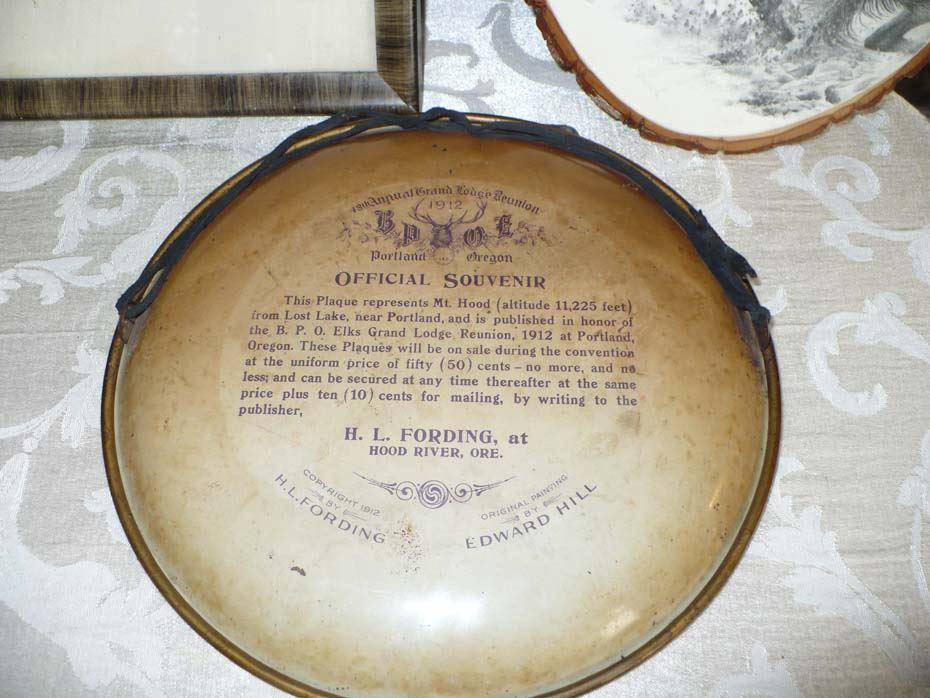 48th Annual Grand Lodge Reunion
1912
B P O E
Portland Oregon
OFFICIAL SOUVENIR
This Plaque represents Mt. Hood (altitude 11,225 feet)
from Lost Lake, near Portland, and is published in honor of
the B. P. O. Elks Grand Lodge Reunion, 1912 at Portland,
Oregon. These Plaques will be on sale during the convention
at the uniform price of fifty (50) cents – no more, and no
less; and can be secured at any time thereafter at the same
price plus ten (10) cents for mailing, by writing to the
publisher,
H. L. FORDING, at
HOOD RIVER, ORE.
COPYRIGHT 1912
BY
H. L. FORDING
ORIGINAL PAINTING
BY
EDWARD HILL